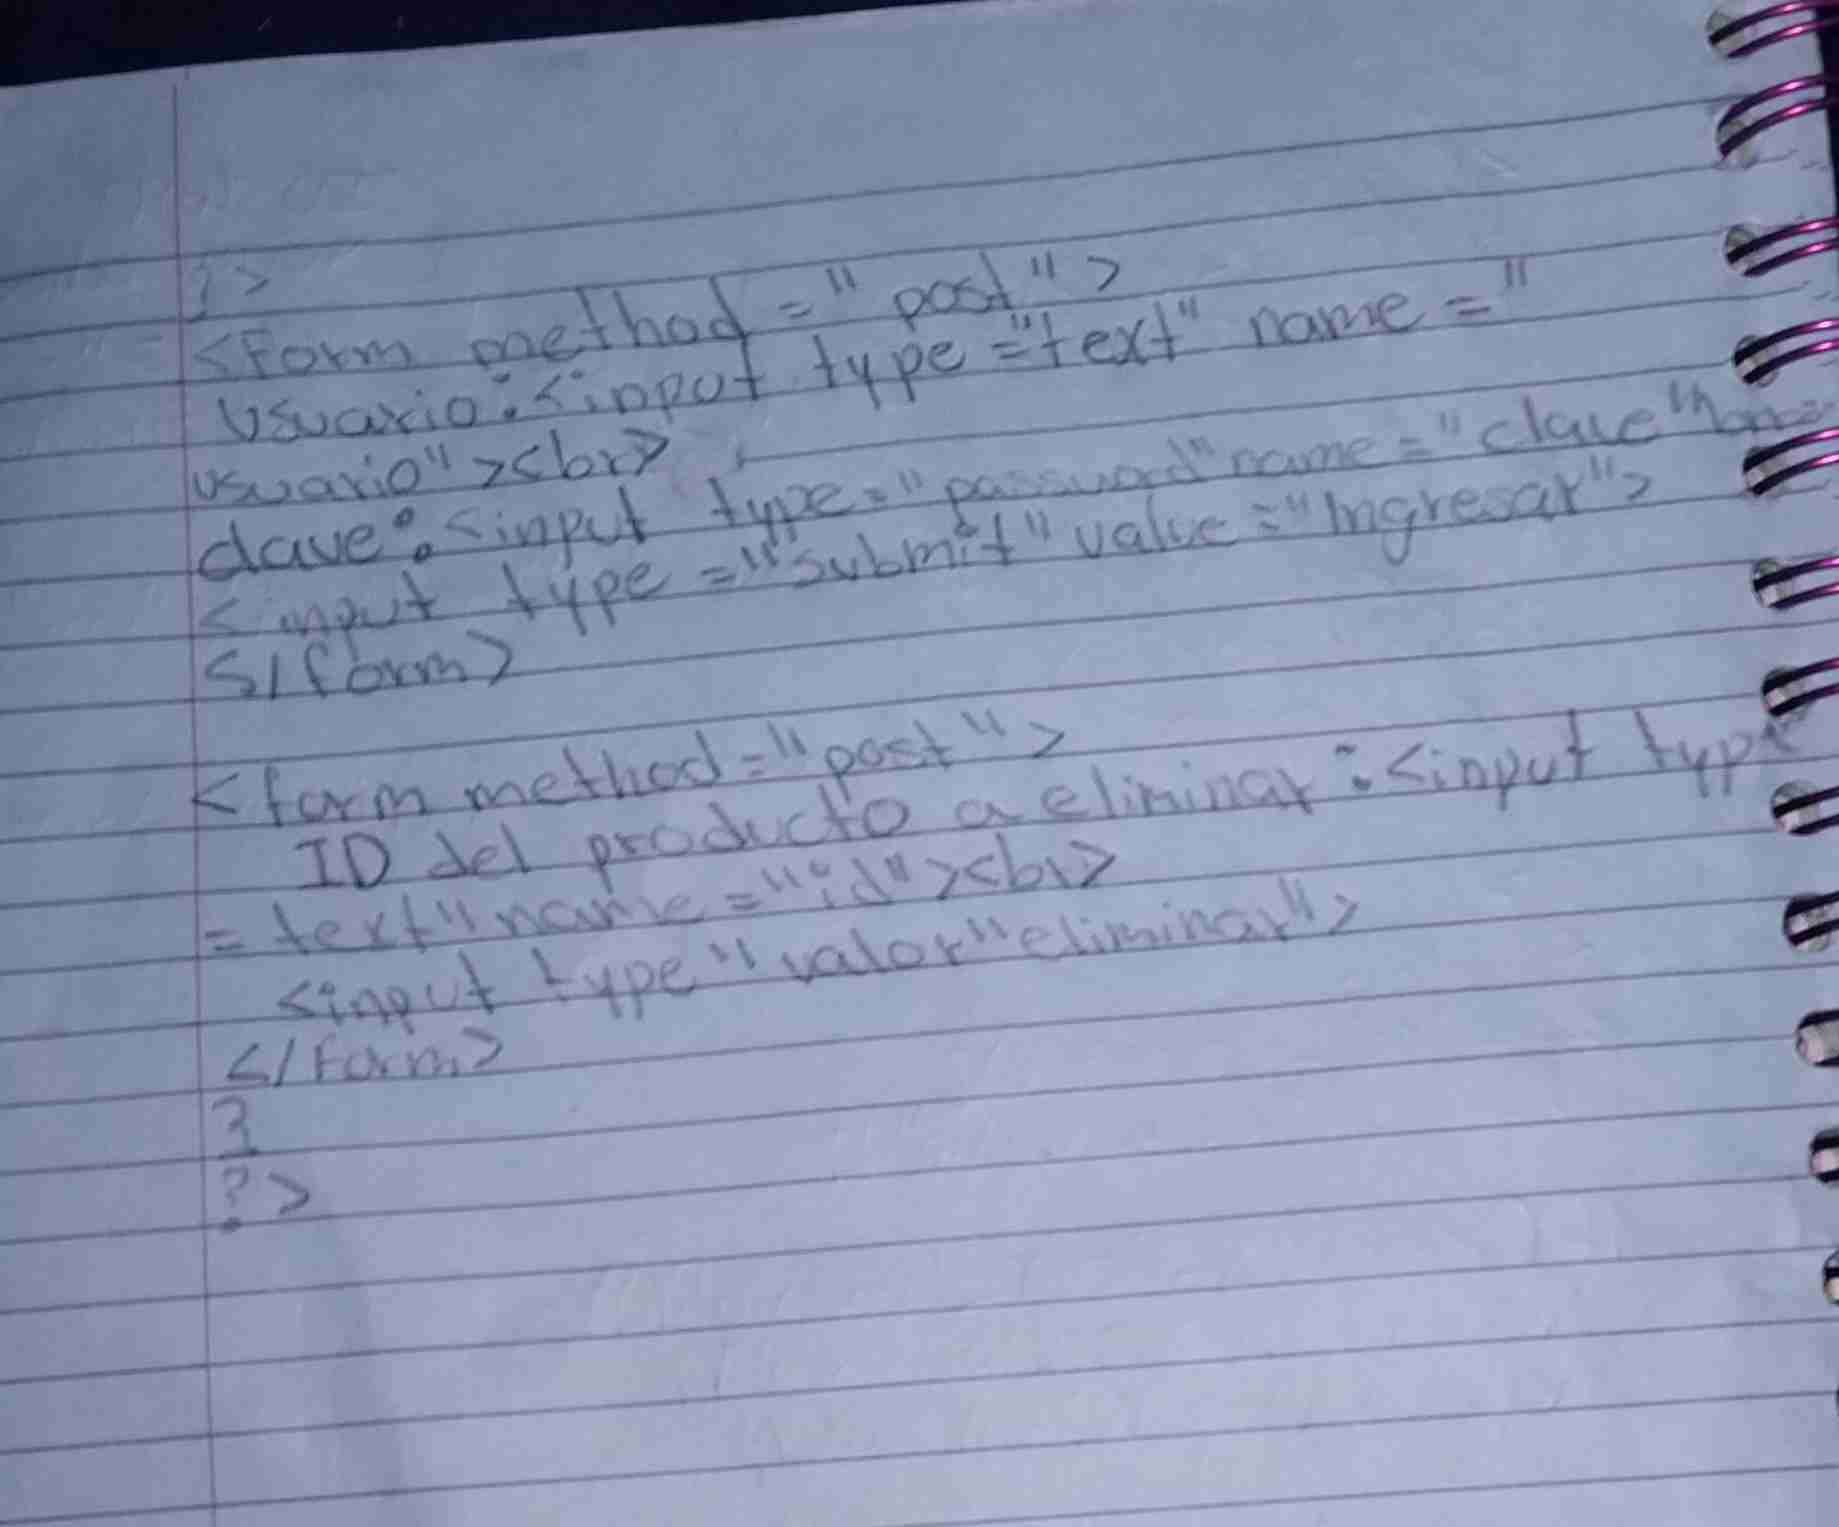 ?>
<form method = "post">
Usuario: <input type = "text" name = "
usuario"><br>
clave: <input type = "password" name = "clave"
<input type = "submit" value = "Ingresar">
</form>
<form method = "post">
ID del producto a eliminar: <input type
= text" name = "id"><br>
<input type "valor" eliminar">
</form>
}
?>